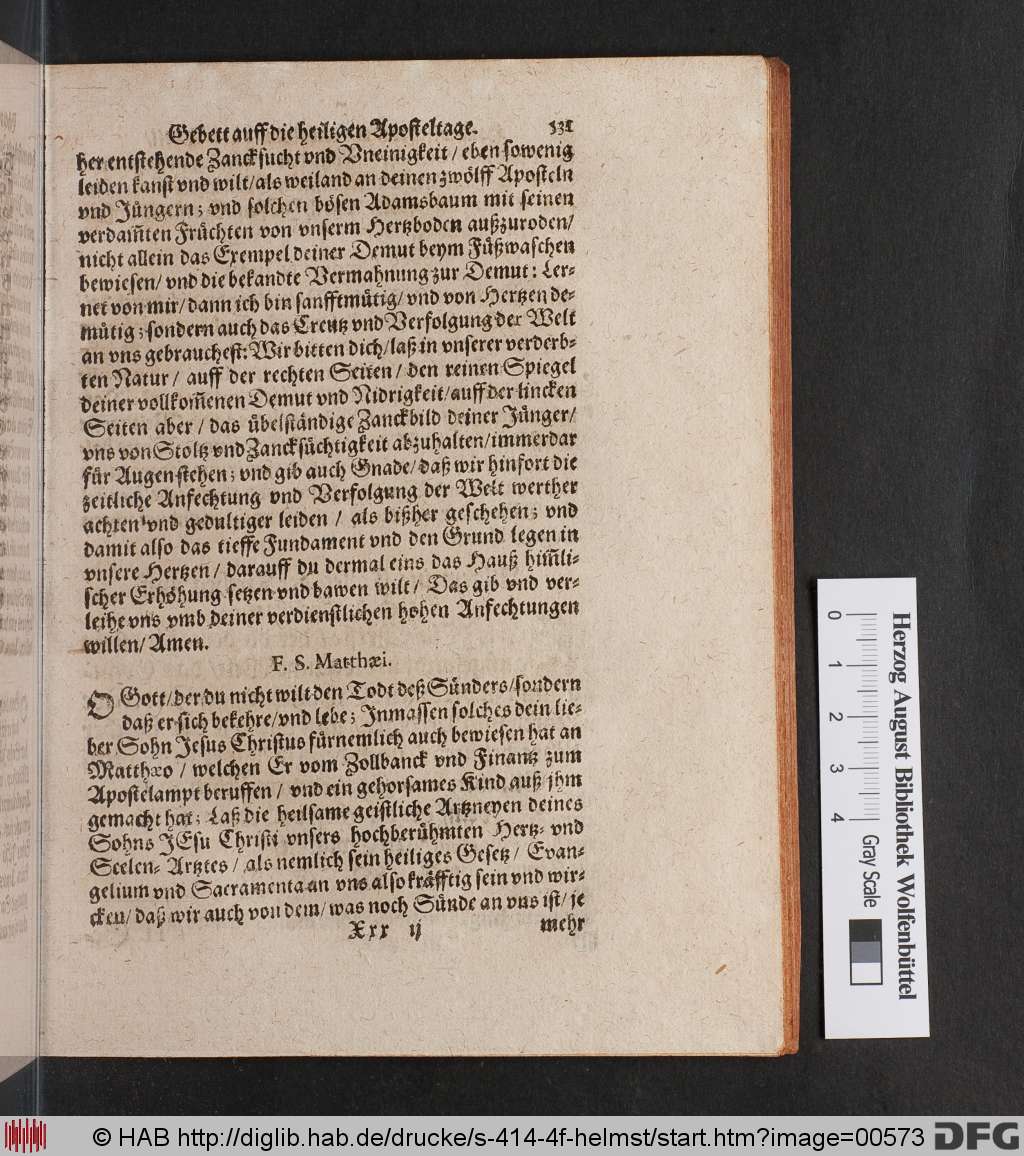 Gebett auff die heiligen Aposteltage. 531
her entstehende Zancksucht vnd Vneinigkeit / eben sowenig
leiden kanst vnd wilt / als weiland an deinen zwölff Aposteln
vnd Jüngern; vnd solchen bösen Adamsbaum mit seinen
verdam̃ten Früchten von vnserm Hertzboden außzuroden /
nicht allein das Exempel deiner Demut beym Füßwaschen
bewiesen / vnd die bekandte Vermahnung zur Demut: Ler-
net von mir / dann ich bin sanfftmütig / vnd von Hertzen de-
mütig; sondern auch das Creutz vnd Verfolgung der Welt
an vns gebrauchest: Wir bitten dich / laß in vnserer verderb-
ten Natur / auff der rechten Seiten / den reinen Spiegel
deiner vollkom̃enen Demut vnd Nidrigkeit / auff der lincken
Seiten aber / das übelständige Zanckbild deiner Jünger /
vns von Stoltz vnd Zancksüchtigkeit abzuhalten / immerdar
für Augen stehen; vnd gib auch Gnade / daß wir hinfort die
zeitliche Anfechtung vnd Verfolgung der Welt werther
achten vnd gedultiger leiden / als bißher geschehen; vnd
damit also das tieffe Fundament vnd den Grund legen in
vnsere Hertzen / darauff du dermal eins das Hauß him̃li-
scher Erhöhung setzen vnd bawen wilt / Das gib vnd ver-
leihe vns vmb deiner verdienstlichen hohen Anfechtungen
willen / Amen.
F. S. Matthæi.
O Gott / der du nicht wilt den Todt deß Sünders / sondern
daß er sich bekehre / vnd lebe; Inmassen solches dein lie-
ber Sohn Jesus Christus fürnemlich auch bewiesen hat an
Matthæo / welchen Er vom Zollbanck vnd Finantz zum
Apostelampt beruffen / vnd ein gehorsames Kind auß jhm
gemacht hat; Laß die heilsame geistliche Artzneyen deines
Sohns JEsu Christi vnsers hochberühmten Hertz- vnd
Seelen- Artztes / als nemlich sein heiliges Gesetz / Evan-
gelium vnd Sacramenta an vns also kräfftig sein vnd wir-
cken / daß wir auch von dem / was noch Sünde an vns ist / je
Xxx ij mehr
0 1 2 3 4
Gray Scale
Herzog August Bibliothek Wolfenbüttel
© HAB http://diglib.hab.de/drucke/s-414-4f-helmst/start.htm?image=00573 DFG